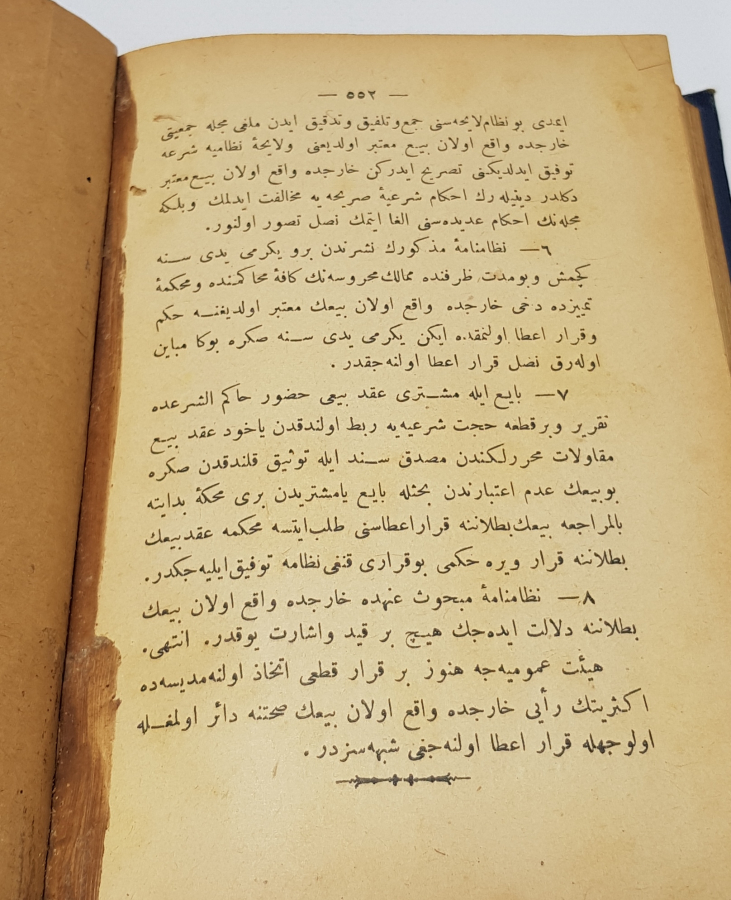 — ٥٥٢ —
ایمدی بو نظام لایحه‌سنی جمع و تلفیق و تدقیق ایدن ملغی مجله جمعیتی
خارجده واقع اولان بیع معتبر اولدیغنی ولایحهٔ نظامیه شرعه
توفیق ایدلدیکنی تصریح ایدرکن خارجده واقع اولان بیع معتبر
دکلدر دینیله‌رك احکام شرعیهٔ صریحه‌یه مخالفت ایدلمك وبلکه
مجله‌نك احکام عدیده‌سنی الغا ایتمك نصل تصور اولنور.
٦— نظامنامهٔ مذکورك نشرندن برو یکرمی یدی سـنه
کچمش وبومدت ظرفنده ممالك محروسه‌نك کافهٔ محاکمنده ومحکمهٔ
تمییزده دخی خارجده واقع اولان بیعك معتبر اولدیغنـه حکم
وقرار اعطا اولنمقده ایکن یکرمی یدی سـنه صکره بوکا مباین
اوله‌رق نصل قرار اعطا اولنه‌جقدر.
٧— بایع ایله مشـتری عقد بیعی حضور حاکم الشرعده
تقریر وبرقطعه حجت شرعیه‌یه ربط اولندقدن یاخود عقد بیـع
مقاولات محررلکندن مصدق سـند ایله توثیق قلندقدن صکره
بوبیعك عدم اعتبارندن بحثله بایع یامشتریدن بری محکمهٔ بدایته
بالمراجعه بیعك بطلاننه قرار اعطاسنی طلب ایتسه محکمه عقد بیعك
بطلاننه قرار ویره حکمی بوقراری قنغی نظامه توفیق ایلیه‌جکدر.
٨— نظامنامهٔ مبحوث عنهده خارجده واقع اولان بیعك
بطلاننه دلالت ایده‌جك هیـچ بر قید واشارت یوقدر. انتهی.
هیئت عمومیه‌جه هنوز بر قرار قطعی اتخاذ اولنه‌مدیسه‌ده
اکثریتك رأیی خارجده واقع اولان بیعك صحتنه دائر اولمغـله
اولوجهله قرار اعطا اولنه‌جغی شبهه‌سزدر.